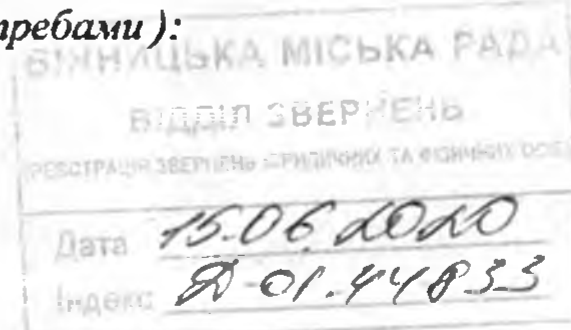 требами ):
ВІННИЦЬКА МІСЬКА РАДА
ВІДДІЛ ЗВЕРНЕНЬ
(РЕЄСТРАЦІЯ ЗВЕРНЕНЬ ЮРИДИЧНИХ ТА ФІЗИЧНИХ ОСІБ)
Дата 15.06.2020
Індекс Д-01.44833